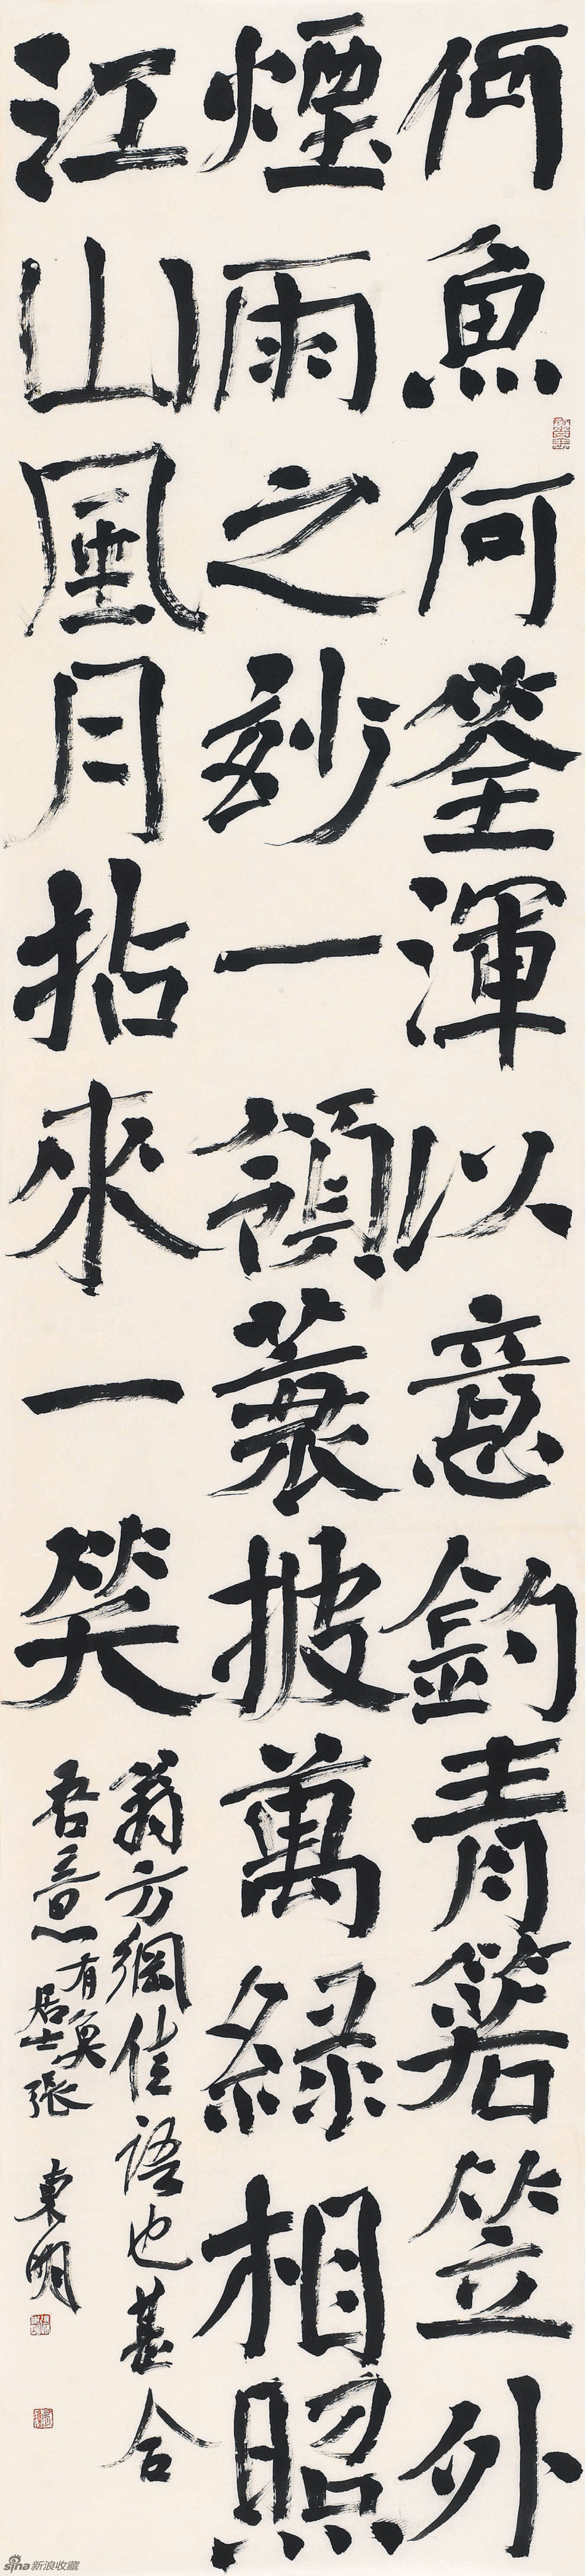 何魚何筌渾以意釣青箬笠外
煙雨之妙一領蓑披萬綠相照
江山風月拈來一笑
翁方綱佳語也甚合
吾意有居士張東明
sina新浪收藏